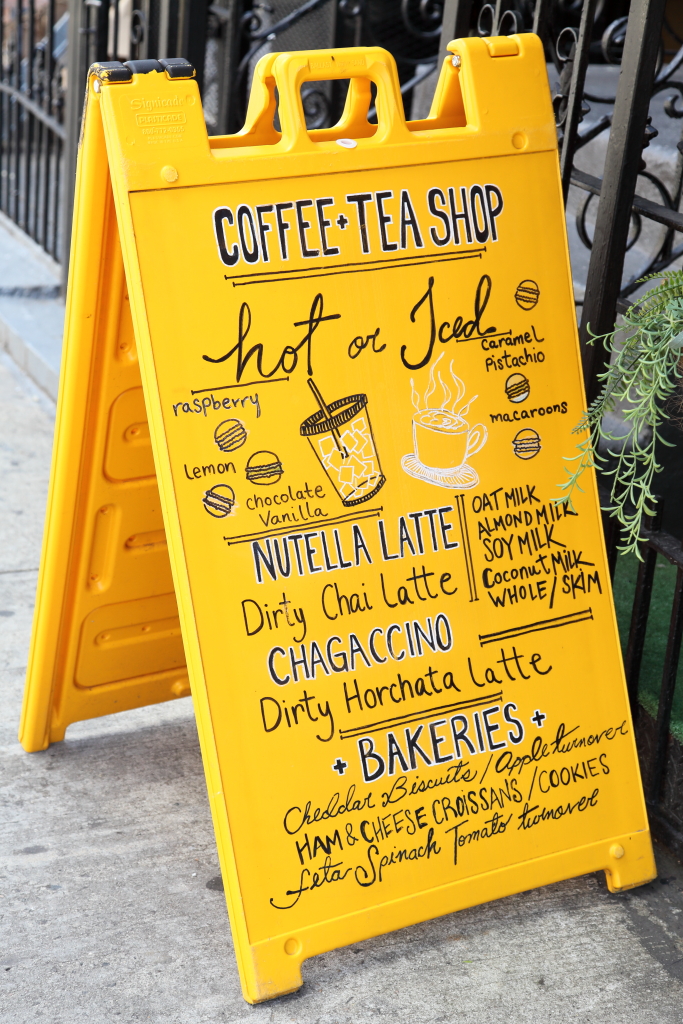 Signicade
PLASTICADE
COFFEE+TEA SHOP
hot or Iced
caramel
Pistachio
macaroons
raspberry
lemon
chocolate
Vanilla
NUTELLA LATTE
Dirty Chai Latte
CHAGACCINO
Dirty Horchata Latte
OAT MILK
ALMOND MILK
SOY MILK
Coconut MILK
WHOLE/SKIM
+ BAKERIES +
Cheddar Biscuits / Apple turnover
HAM & CHEESE CROISSANS / COOKIES
feta Spinach Tomato turnover